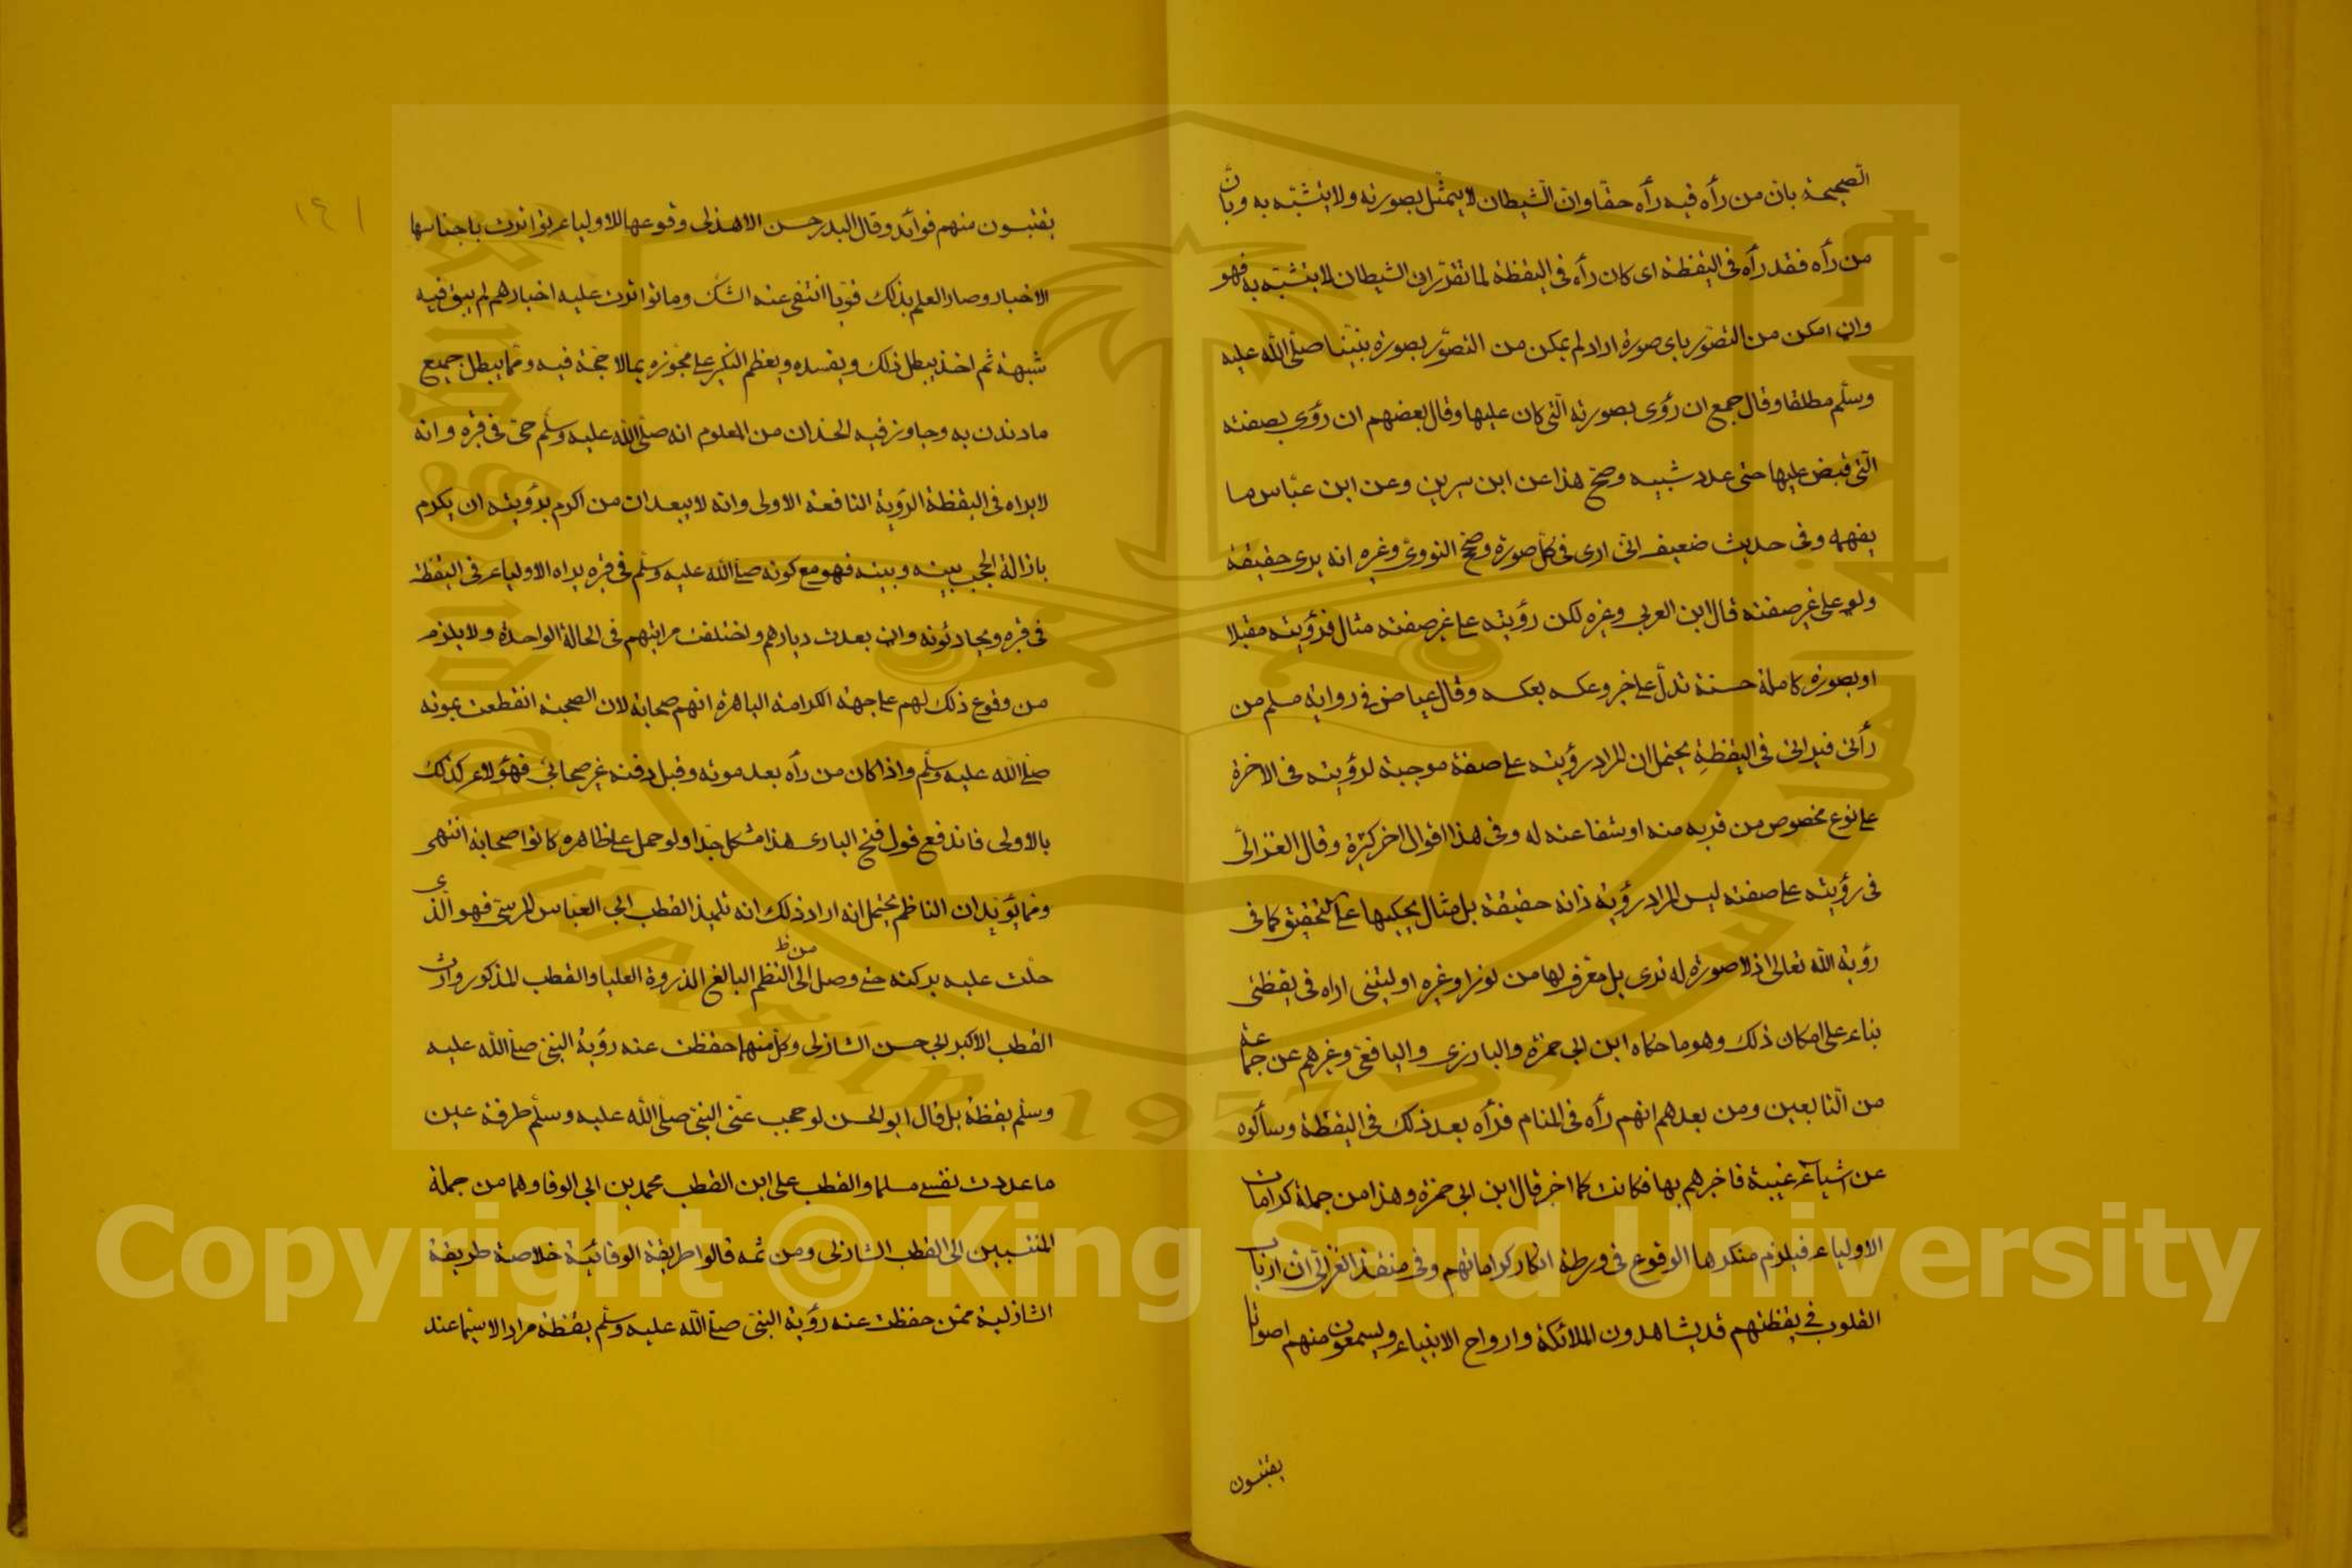 الصحيحة بان من رأه فيه رأه حقّا وانّ الشيطان لا يتمثّل بصورته ولا يتشبّه به وبانّ
من رأه فقد رأه فى اليقظة اى كان رأه فى اليقظة لما تقرّر ان الشيطان لا يتشبّه به فهو
وان امكن من التصوّر باى صورة اراد لم يمكن من التصوّر بصورة نبيّنا صلّى اللّه عليه
وسلّم مطلقا وقال جمع ان رؤى بصورته الّتى كان عليها وقال بعضهم ان رؤى بصفته
الّتى قبض عليها حتى عدد شيبه وصحّ هذا عن ابن سيرين وعن ابن عبّاس ما
يفهمه وفى حديث ضعيف انّى ارى فى كلّ صورة وصحّ النووى وغيره انه يرى حقيقة
ولو على غير صفته قال ابن العربى وغيره لكن رؤيته على غير صفته مثال فرؤيته مقبلا
او بصورة كاملة حسنة تدلّ على خير وعكسه بعكسه وقال عياض فى رواية مسلم من
رأنى فيرانى فى اليقظةِ يحتمل ان المراد رؤيته على صفة موجبة لرؤيته فى الاخرة
على نوع مخصوص من قربه منه او شفاعته له وفى هذا اقوال اخر كثيرة وقال الغزالّى
فى رؤيته على صفته ليس المراد رؤية ذاته حقيقة بل مثال يحكيها على التحقيق كما فى
رؤية اللّه تعالى اذ لا صورة له ترى بل معرف لها من نور او غيره او ليتنى اراه فى يقظتى
بناء على امكان ذلك وهو ما حكاه ابن ابى جمرة والبارزى واليافعى وغيرهم عن جماعة
من التّابعين ومن بعدهم انهم رأه فى المنام فرأه بعد ذلك فى اليقظة وسألوه
عن اشياء غيبية فاخبرهم بها فكانت كما اخبر قال ابن ابى جمرة وهذا من جملة كرامات
الاولياء فيلزم منكرها الوقوع فى ورطة انكار كراماتهم وفى منقذ الغزالى ان ارباب
القلوب فى يقظتهم قد يشاهدون الملائكة وارواح الانبياء ويسمعون منهم اصواتا
يقتبسون
١٤١
يقتبسون منهم فوائد وقال البدر حسن الاهدلى وقوعها للاولياء تواترت باجناسها
الاخبار وصار العلم بذلك قويّا انتفى عنه الشكّ وما تواترت عليه اخبارهم لم يبق فيه
شبهة ثم اخذ يبطل ذلك ويفسده ويعظم النكير على مجوّزه بما لا حجّة فيه وممّا يبطل جميع
ما دندن به وجاوز فيه الحدّ ان من المعلوم انه صلّى اللّه عليه وسلّم حىّ فى قبره وانه
لا يراه فى اليقظة الرؤية النافعة الاولى وانه لا يبعد ان من اكرم برؤيته ان يكرم
بازالة الحجب بينه وبينه فهو مع كونه صلى اللّه عليه وسلّم فى قبره يراه الاولياء فى اليقظة
فى قبره ويحادثونه وان بعدت ديارهم واختلفت مراتبهم فى الحالة الواحدة ولا يلزم
من وقوع ذلك لهم على جهة الكرامة الباهرة انهم صحابة لان الصحبة انقطعت بموته
صلى اللّه عليه وسلّم واذا كان من رأه بعد موته وقبل دفنه غير صحابىّ فهؤلاء كذلك
بالاولى فاندفع قول فتح البارى هذا مشكل جدّا ولو حمل على ظاهره كانوا صحابة انتهى
وممّا يؤيد ان الناظم يحتمل انه اراد ذلك انه تلميذ القطب ابى العبّاس المرسى فهو الّذى
حلّت عليه بركته حتى وصل الى النظم البالغ الذروة العليا والقطب المذكور وارث
من ظ
القطب الاكبر ابى حسن الشاذلى وكلّ منهما حفظت عنه رؤية النبىّ صلى اللّه عليه
وسلّم يقظة بل قال ابو الحسن لو حجب عنّى النبىّ صلّى اللّه عليه وسلّم طرفة عين
ما عددت نفسى مسلما والقطب على ابن القطب محمد بن ابى الوفا وهما من جملة
المنتسبين الى القطب الشاذلى ومن ثمه قالوا طريقة الوفائيّة خلاصة طريقة
الشاذلية ممّن حفظت عنه رؤية النبىّ صلى اللّه عليه وسلّم يقظة مرارا لا سيّما عند
Copyright © King Saud University
King Saud University
1957